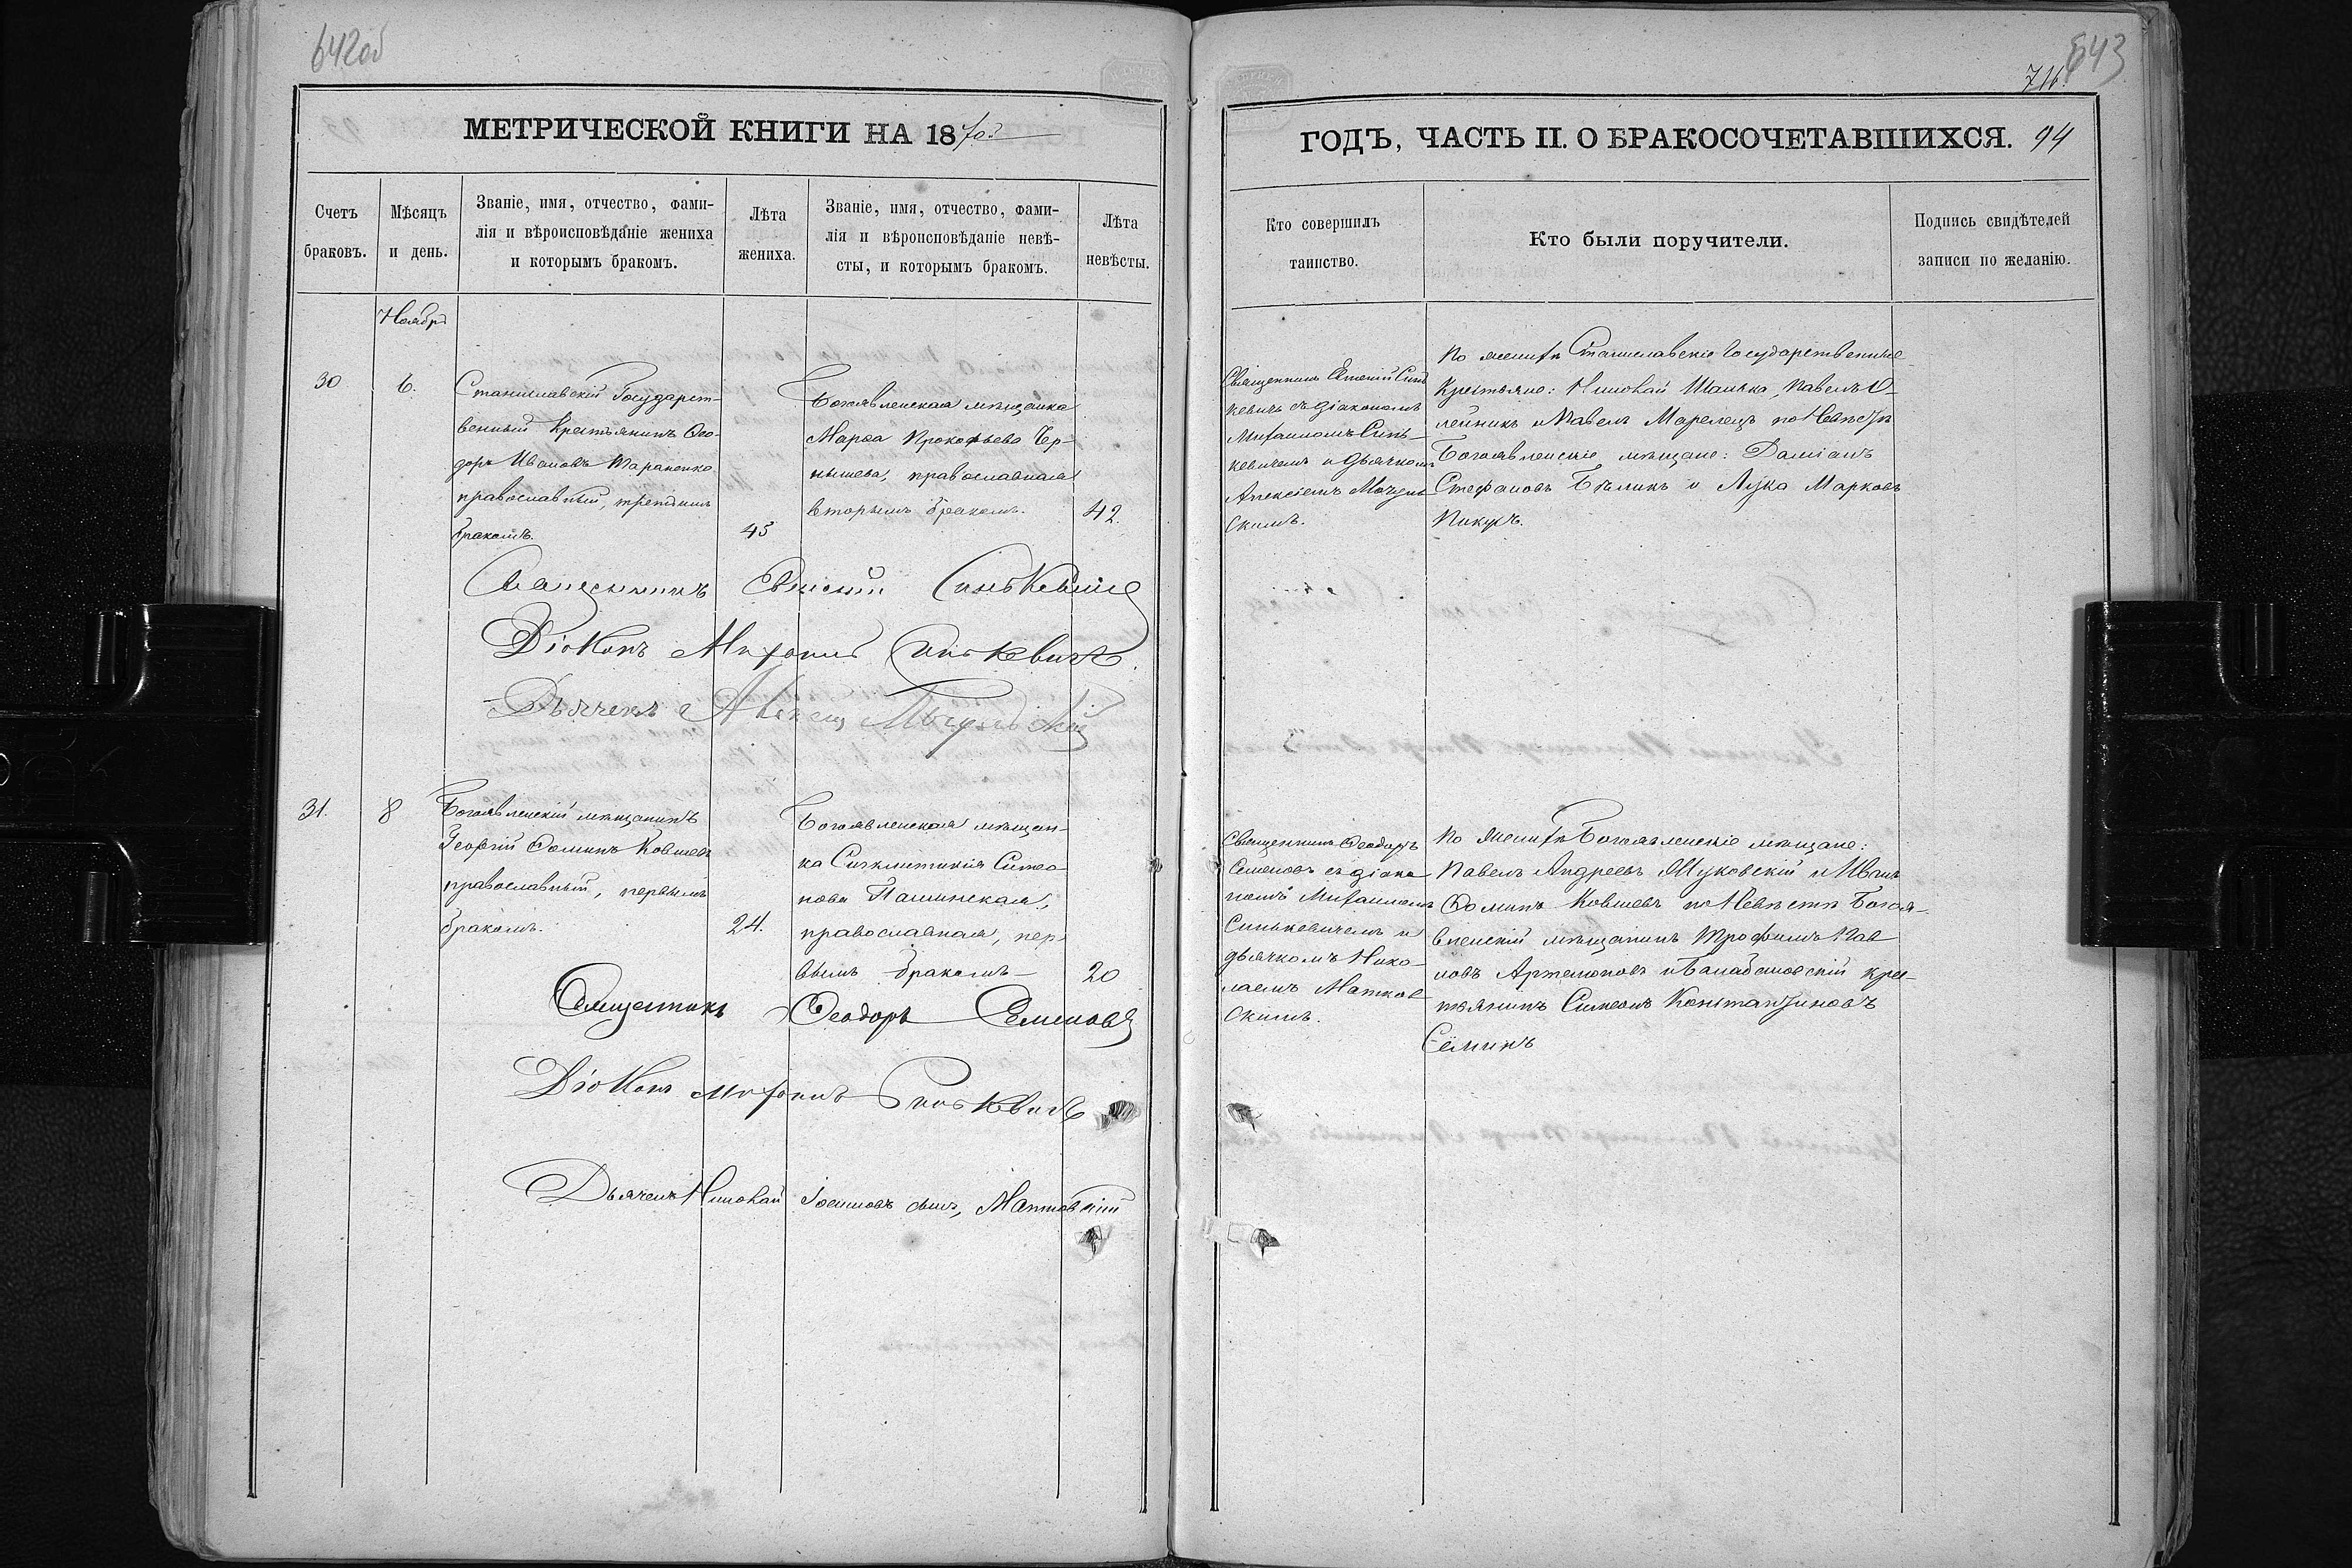 642об
МЕТРИЧЕСКОЙ КНИГИ НА 1870й
Счетъ браковъ.
Мѣсяцъ и день.
Званіе, имя, отчество, фами-
лія и вѣроисповѣданіе жениха
и которымъ бракомъ.
Лѣта жениха.
Званіе, имя, отчество, фами-
лія и вѣроисповѣданіе невѣ-
сты, и которымъ бракомъ.
Лѣта невѣсты.
Ноября
30
6.
Станиславскій Государст-
венный Крестьянинъ Ѳео-
доръ Ивановъ Тараненко
православный, третьимъ
бракомъ.
45
Богоявленская мѣщанка
Марѳа Прокофьева Чер-
нышева, православная
вторымъ бракомъ.
42.
Священникъ Евгеній Синькевичъ
Діаконъ Михаилъ Синькевичъ.
Дьячекъ Алексѣй
31.
8
Богоявленскій мѣщанинъ
Георгій Ѳоминъ Ковшевъ
православный, первымъ
бракомъ.
24.
Богоявленская мѣщан-
ка Синклитикія Симео-
нова
православная, пер-
вымъ бракомъ
20
Священникъ Ѳеодоръ Семеновъ
Діаконъ Михаилъ Синькевичъ
Дьячекъ Николай Іосифовъ сынъ, Матковскій
643
716.
ГОДЪ, ЧАСТЬ II. О БРАКОСОЧЕТАВШИХСЯ. 94
Кто совершилъ
таинство.
Кто были поручители.
Подпись свидѣтелей
записи по желанію.
Священникъ Евгеній Синь
кевичъ съ діакономъ
Михаиломъ Синь-
кевичемъ и дьячкомъ
Алексѣемъ
скимъ.
По женихѣ Станиславскіе Государственные
Крестьяне: Николай Шанька, Павелъ О-
лейникъ и Павелъ Марелецъ по Невѣстѣ
Богоявленскіе мѣщане: Даміанъ
Стефановъ Бѣликъ и Лука Марковъ
Пикуръ.
Священникъ Ѳеодоръ
Семеновъ съ діако
номъ Михаиломъ
Синькевичемъ и
дьячкомъ Нико-
лаемъ Матков
скимъ.
По Женихѣ Богоявленскіе мѣщане:
Павелъ Андреевъ Жуковскій и Иванъ
Ѳоминъ Ковшевъ по Невѣстѣ Богоя-
вленскій мѣщанинъ Трофимъ Пав
ловъ Артемоновъ и Балабановскій крес-
тьянинъ Симеонъ Константиновъ
Семинъ